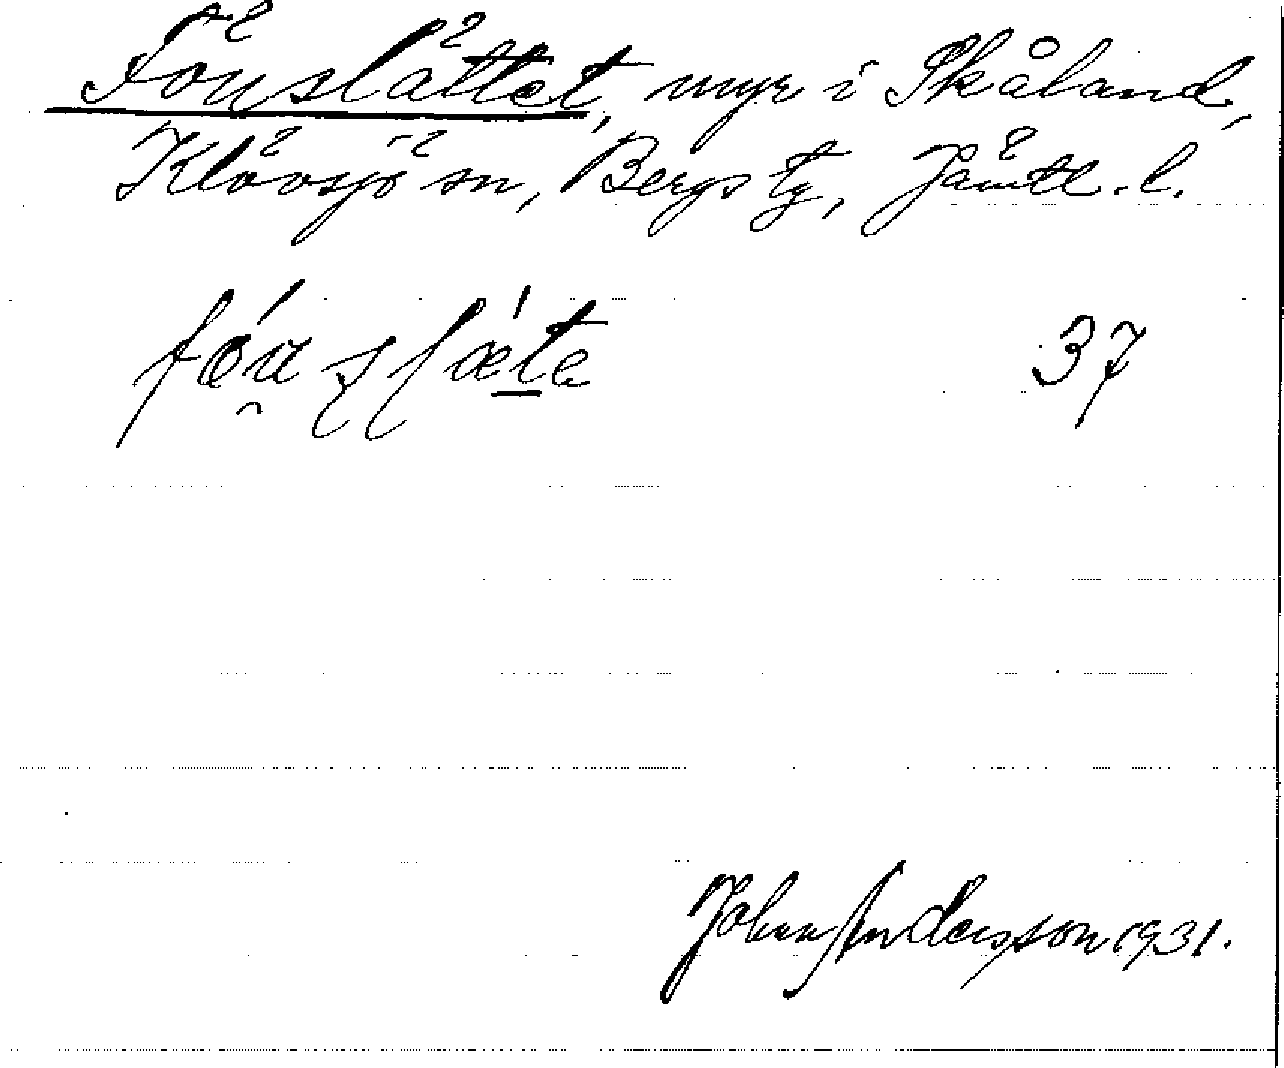 Fönslättet, myr i Skåland,
Klövsjö sn, Bergs tg, Jämtl. l.
37
Johan Andersson 1931.